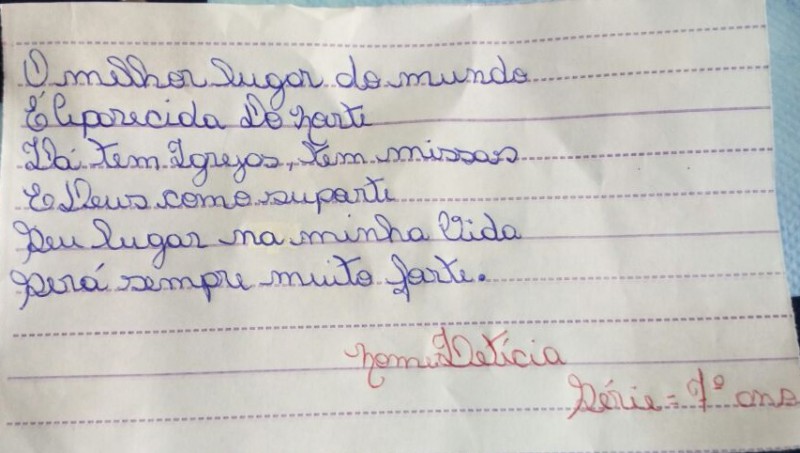 O melhor lugar do mundo
É Aparecida Do norte
Lá tem Igrejas, tem missas
E Deus como suporte
Seu lugar na minha Vida
Será sempre muito forte.
nome: Letícia
Série = 7º ano